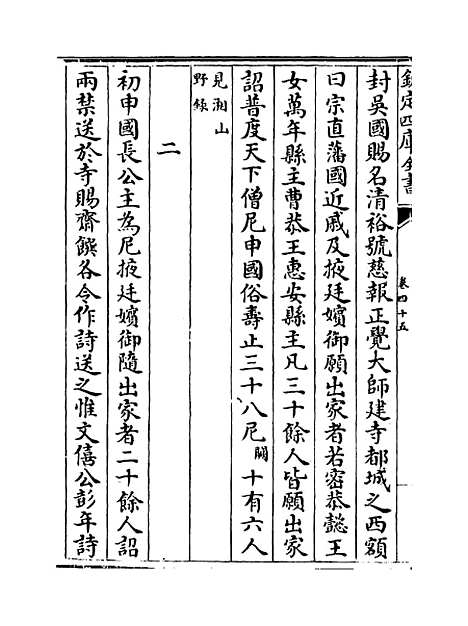 欽定四庫全書
卷四十五
封吳國賜名清裕號慈報正覺大師建寺都城之西額
曰崇直藩國近戚及掖廷嬪御願出家者若密恭懿王
女萬年縣主曹恭王惠安縣主凡三十餘人皆願出家
詔普度天下僧尼申國俗壽止三十八尼闕十有六人
見湘山
野錄
二
初申國長公主為尼掖廷嬪御隨出家者二十餘人詔
兩禁送於寺賜齋饌各令作詩送之惟文僖公彭年詩